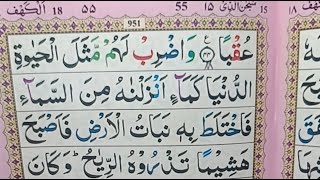 الكهف ١٨ ٥٥ 55 ١٥ سبحن الذي 15
951
عُقْبًا ۝٤٤ وَاضْرِبْ لَهُمْ مَّثَلَ الْحَيٰوةِ
الدُّنْيَا كَمَآءٍ اَنْزَلْنٰهُ مِنَ السَّمَآءِ
فَاخْتَلَطَ بِهٖ نَبَاتُ الْاَرْضِ فَاَصْبَحَ
هَشِيْمًا تَذْرُوْهُ الرِّيٰحُ ؕ وَكَانَ